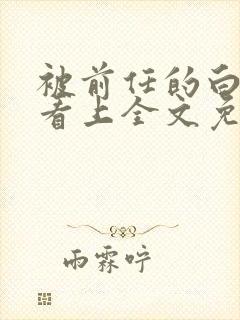 被前任的白
看上全文免
雨霖咛